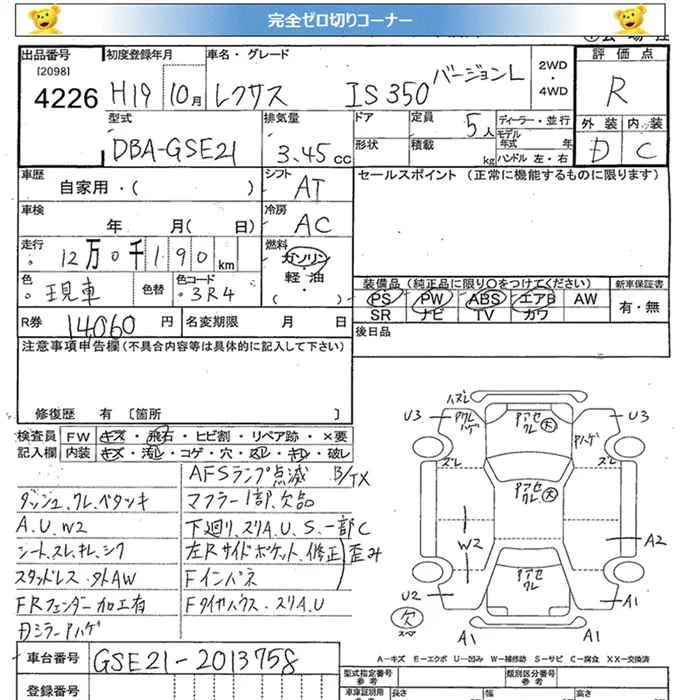 完全ゼロ切りコーナー
出品番号 初度登録年月 車名・グレード 2WD・4WD 評価点
[2098]
4226 H19 10月 レクサス IS350 バージョンL R
型式 排気量 ドア 定員 5人 ディーラー・並行 外装 内装
DBA-GSE21 3.45cc 形状 積載 kg モデル年式 年 ハンドル 左・右 D C
車歴 自家用・( ) シフト AT セールスポイント (正常に機能するものに限ります)
車検 年 月( 日) 冷房 AC
走行 12万0千190km 燃料 ガソリン・軽・油・( )
色 現車 色替 色コード 3R4
装備品 (純正品に限り○をつけてください) 新車保証書
PS PW ABS エアB AW 有・無
SR ナビ TV カワ
R券 14060円 名変期限 月 日 後日品
注意事項申告欄(不具合内容等は具体的に記入して下さい)
修復歴 有 [箇所 ]
検査員 FW キズ・飛石・ヒビ割・リペア跡・×要
記入欄 内装 キズ・汚レ・コゲ・穴・スレ・キレ・破レ
AFSランプ点滅 B/TX
ダッシュ.クレ.ベタツキ マフラー1部.欠品
A.U.W2 下廻リ.スリA.U.S.一部C
シートスレ.キレ.シワ 左Rサイドポケット.修正.歪み
スタッドレス・外AW Fインパネ
FRフェンダー加工有 Fタイヤハウス・スリA.U
Dミラーハゲ
ハズレ
U3 ハゲ U3
アセクレ 大
ズレ ズレ
アセクレ 大
W2 A2
アセクレ
U2 A1
欠 スペア A1 A1
A-キズ E-エクボ U-凹み W-補修跡 S-サビ C-腐食 XX-交換済
車台番号 GSE21-2013758
型式指定番号 類別区分番号
登録番号 車庫証明用 長さ 幅 高さ